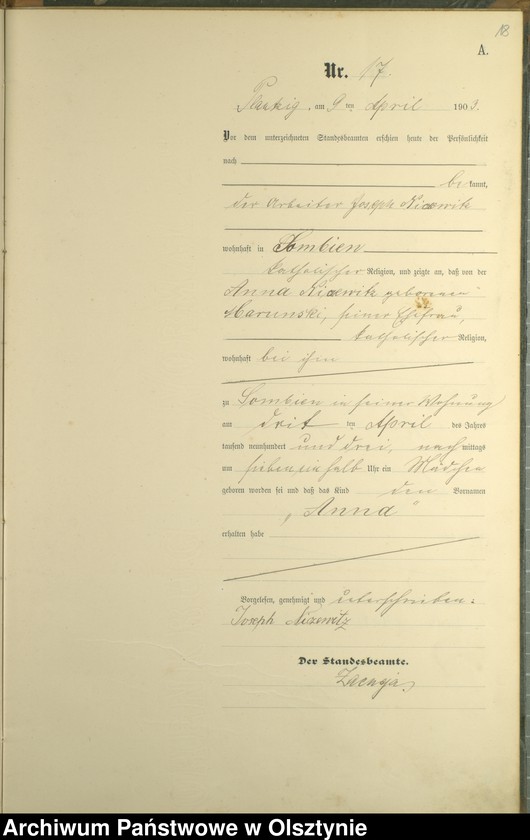 18
A.
Nr. 17.
am 9 ten April 1903.
Vor dem unterzeichneten Standesbeamten erschien heute der Persönlichkeit
nach
be kannt,
der Arbeiter Joseph
wohnhaft in Lombien
katholischer Religion, und zeigte an, daß von der
Anna geborenen
seiner Ehefrau,
katholischer Religion,
wohnhaft bei ihm
zu Lombien in seiner Wohnung
am ten April des Jahres
tausend neunhundert und drei, nach mittags
um siebeneinhalb Uhr ein Mädchen
geboren worden sei und daß das Kind den Vornamen
„Anna“
erhalten habe
Vorgelesen, genehmigt und
Joseph
Der Standesbeamte.
Archiwum Państwowe w Olsztynie